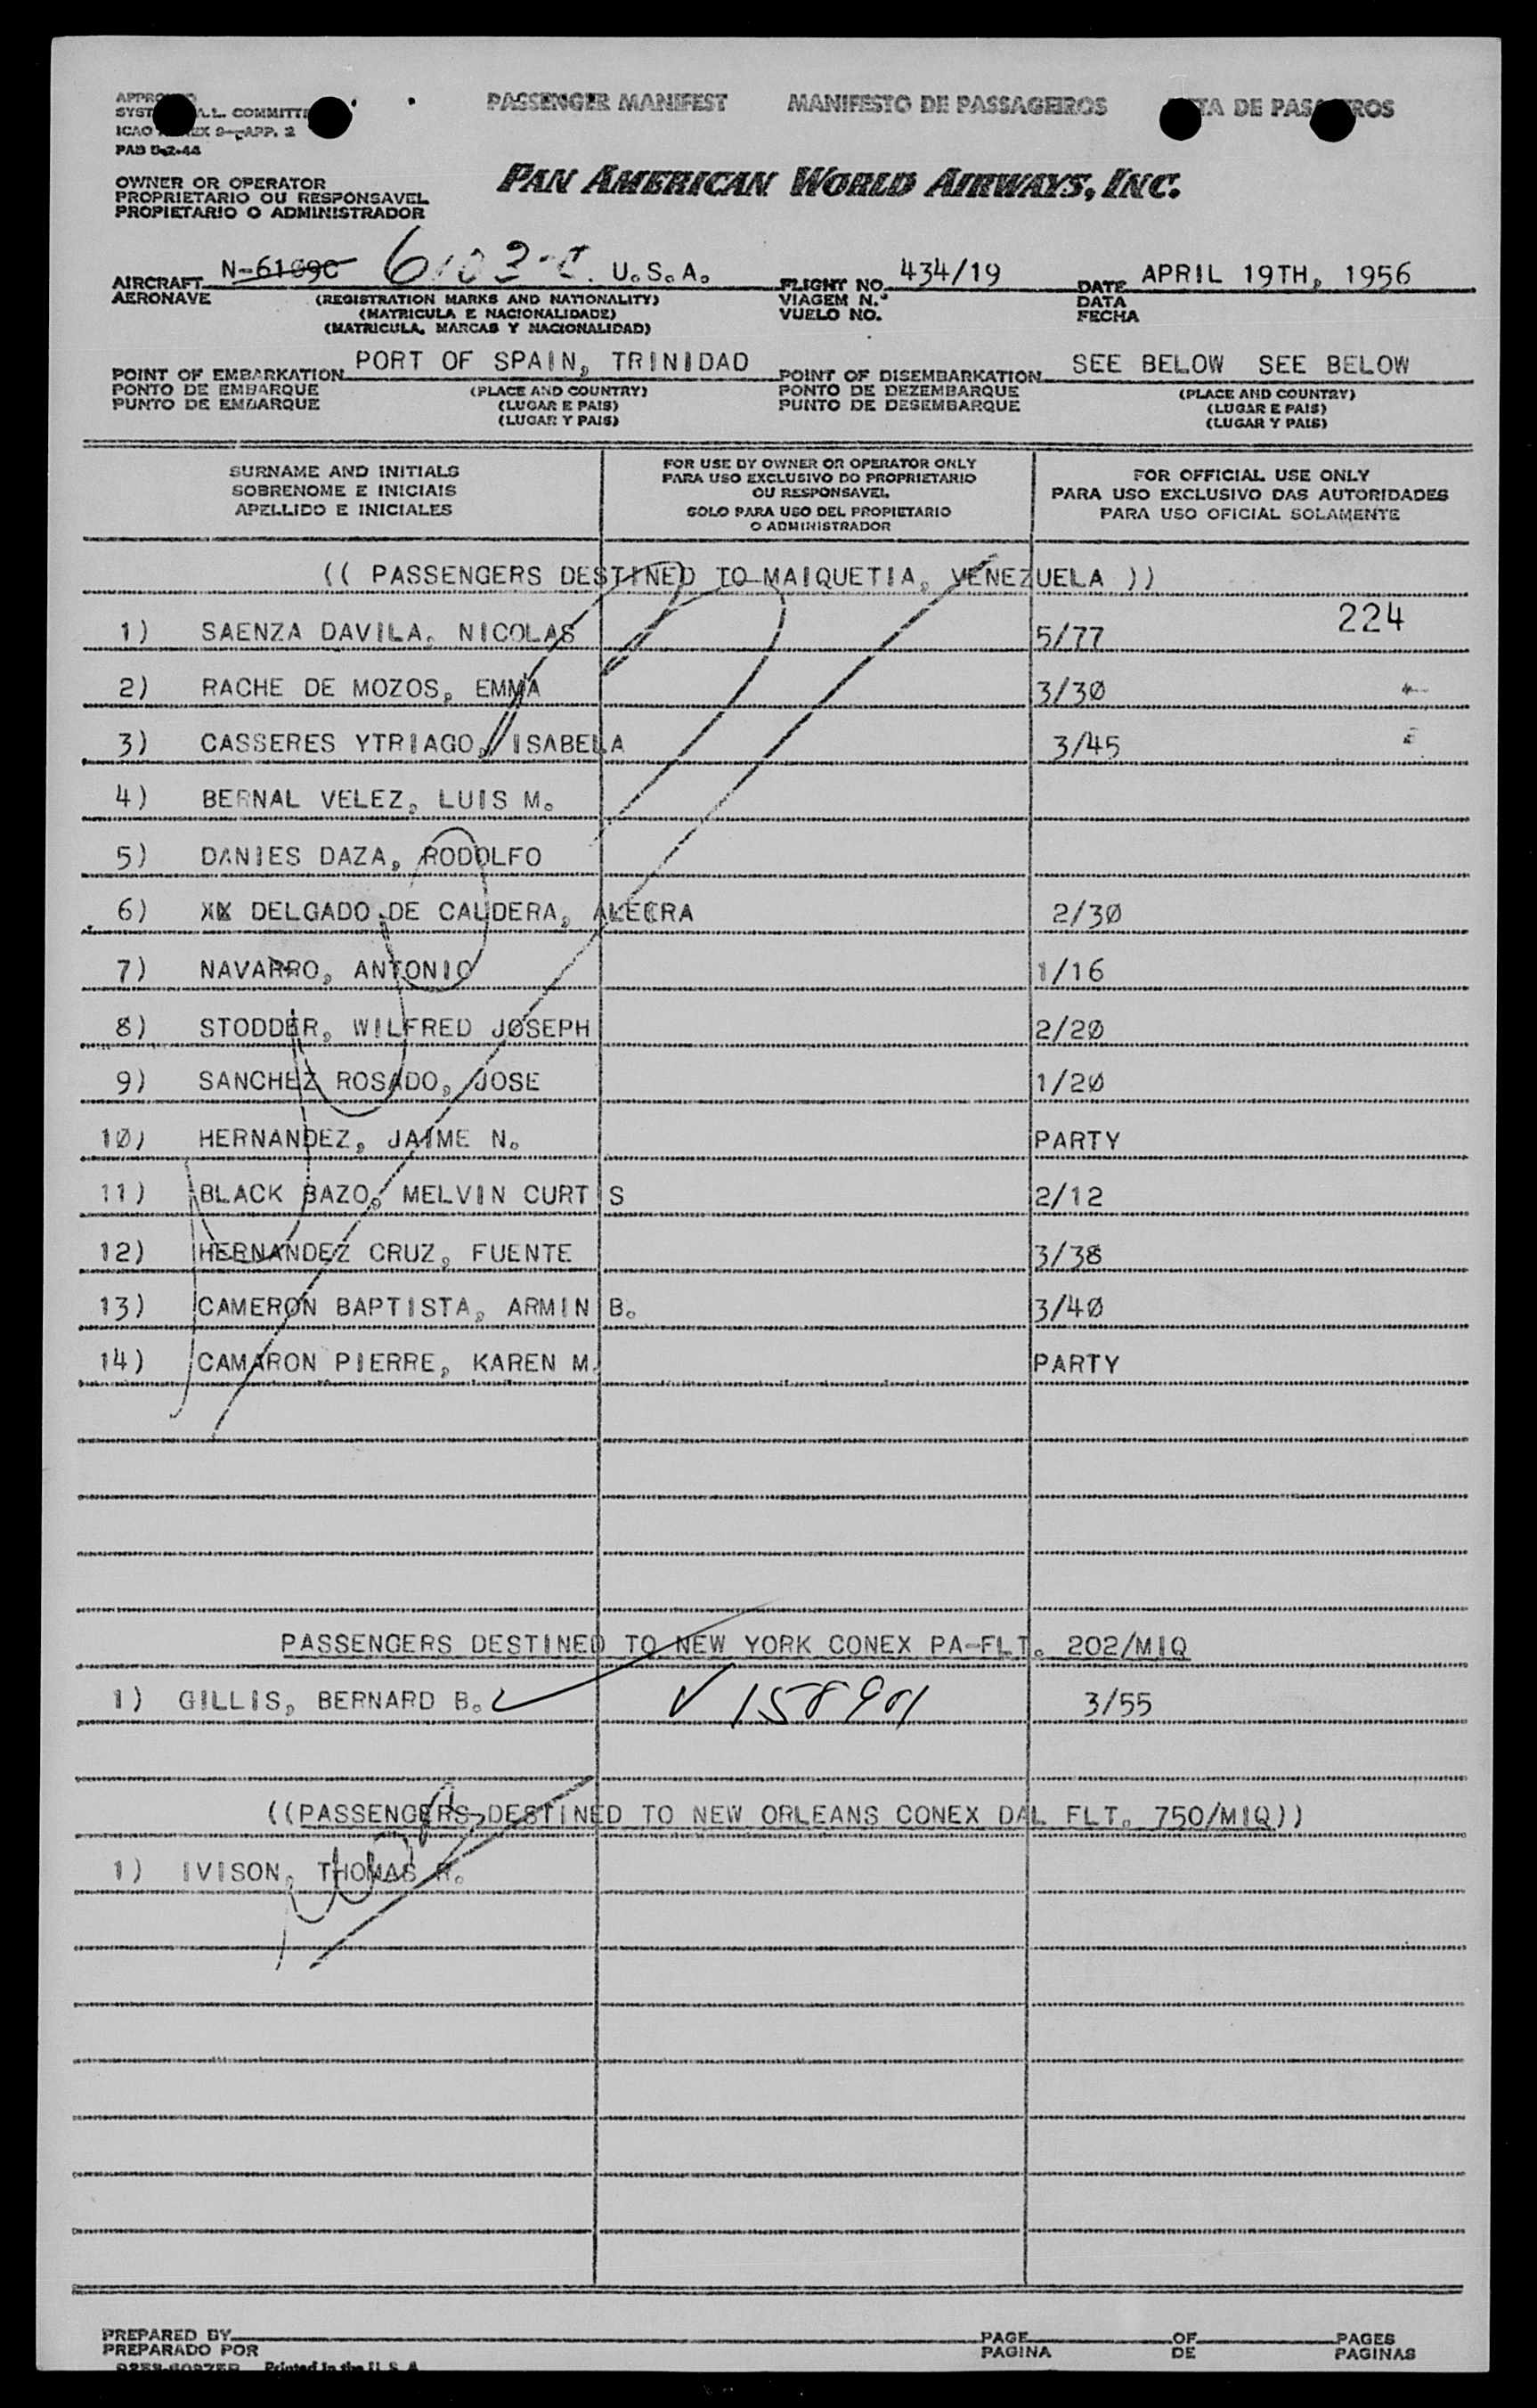 PASSENGER MANIFEST MANIFESTO DE PASSAGEIROS DE PASAJEROS
COMMITTEE
ICAO 9—APP. 2
OWNER OR OPERATOR
PROPRIETARIO OU RESPONSAVEL
PROPIETARIO O ADMINISTRADOR
PAN AMERICAN WORLD AIRWAYS, INC.
AIRCRAFT N-6109C 6103-C. U.S.A. FLIGHT NO. 434/19 DATE APRIL 19TH, 1956
AERONAVE (REGISTRATION MARKS AND NATIONALITY) VIAGEM N.º DATA
(MATRICULA E NACIONALIDADE) VUELO NO. FECHA
(MATRICULA, MARCAS Y NACIONALIDAD)
POINT OF EMBARKATION PORT OF SPAIN, TRINIDAD POINT OF DISEMBARKATION SEE BELOW SEE BELOW
PONTO DE EMBARQUE (PLACE AND COUNTRY) PONTO DE DEZEMBARQUE (PLACE AND COUNTRY)
PUNTO DE EMBARQUE (LUGAR E PAIS) PUNTO DE DESEMBARQUE (LUGAR E PAIS)
(LUGAR Y PAIS) (LUGAR Y PAIS)
SURNAME AND INITIALS
SOBRENOME E INICIAIS
APELLIDO E INICIALES
FOR USE BY OWNER OR OPERATOR ONLY
PARA USO EXCLUSIVO DO PROPRIETARIO
OU RESPONSAVEL
SOLO PARA USO DEL PROPIETARIO
O ADMINISTRADOR
FOR OFFICIAL USE ONLY
PARA USO EXCLUSIVO DAS AUTORIDADES
PARA USO OFICIAL SOLAMENTE
(( PASSENGERS DESTINED TO MAIQUETIA, VENEZUELA ))
1) SAENZA DAVILA, NICOLAS 5/77 224
2) RACHE DE MOZOS, EMMA 3/30
3) CASSERES YTRIAGO, ISABELA 3/45
4) BERNAL VELEZ, LUIS M.
5) DANIES DAZA, RODOLFO
6) DELGADO DE CALDERA, 2/30
7) NAVARRO, ANTONIO 1/16
8) STODDER, WILFRED JOSEPH 2/20
9) SANCHEZ ROSADO, JOSE 1/20
10) HERNANDEZ, JAIME N. PARTY
11) BLACK BAZO, MELVIN CURTIS 2/12
12) HERNANDEZ CRUZ, FUENTE 3/38
13) CAMERON BAPTISTA, ARMIN B. 3/40
14) CAMARON PIERRE, KAREN M. PARTY
PASSENGERS DESTINED TO NEW YORK CONEX PA-FLT. 202/MIQ
1) GILLIS, BERNARD B. ✓ 158901 3/55
((PASSENGERS DESTINED TO NEW ORLEANS CONEX DAL FLT. 750/MIQ))
1) IVISON, THOMAS
PREPARED BY PAGE OF PAGES
PREPARADO POR PAGINA DE PAGINAS
Printed in the U. S. A.